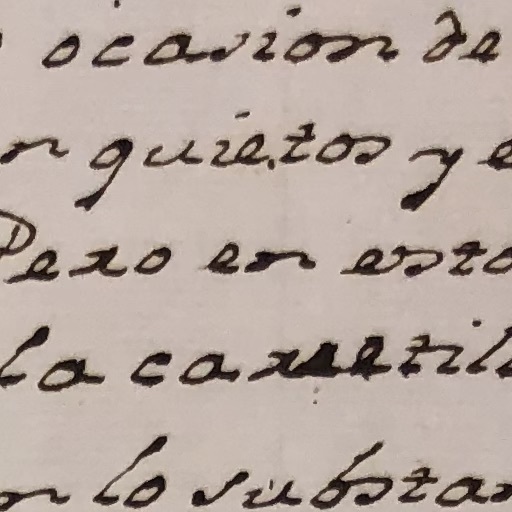 ocasion de
n quietos y e
Pero en esto
la carretil
n lo substan